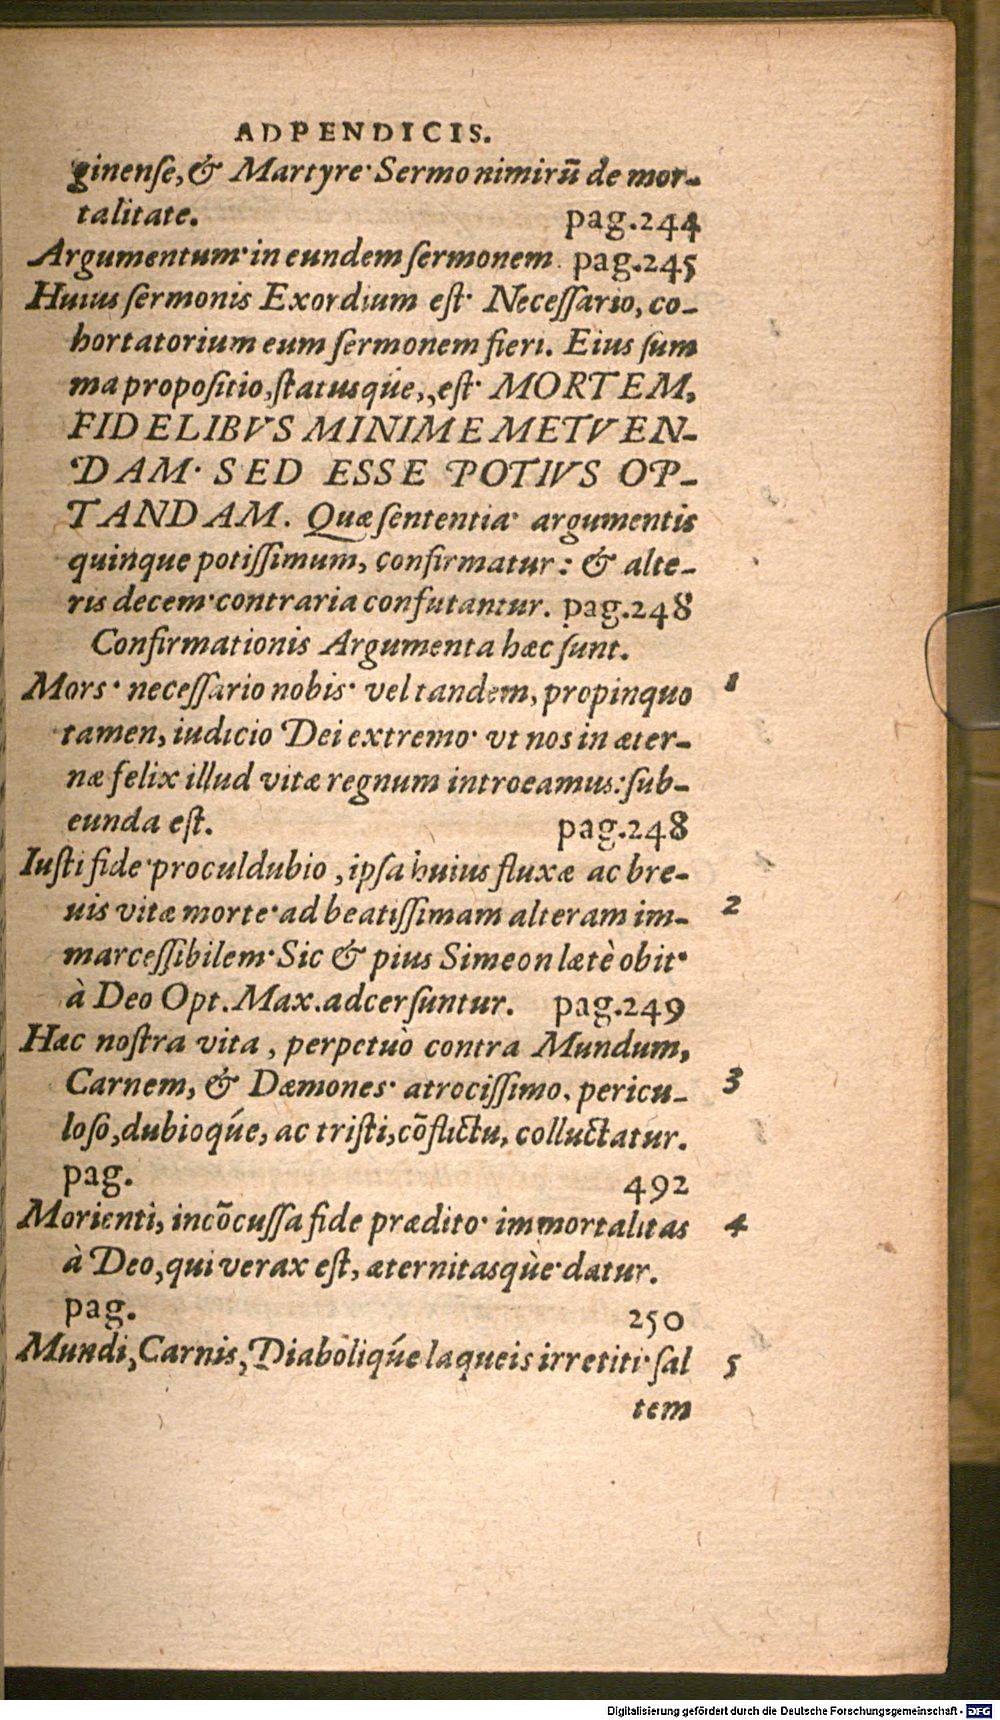 ADPENDICIS.
ginenſe, & Martyre· Sermo nimirũ de mor-
talitate. pag.244
Argumentum· in eundem ſermonem. pag.245
Huius ſermonis Exordium eſt· Neceſſario, co-
hortatorium eum ſermonem fieri. Eius ſum
ma propoſitio, ſtatusq́ue, eſt· MORTEM,
FIDELIBVS MINIME METVEN-
DAM· SED ESSE POTIVS OP-
TANDAM. Quæ ſententia· argumentis
quinque potiſſimum, confirmatur: & alte-
ris decem· contraria confutantur. pag.248
Confirmationis Argumenta hæc ſunt.
Mors· neceſſario nobis· vel tandem, propinquo 1
tamen, iudicio Dei extremo· vt nos in æter-
næ felix illud vitæ regnum introeamus: ſub-
eunda eſt. pag.248
Iuſti fide· proculdubio, ipſa huius fluxæ ac bre-
uis vitæ morte· ad beatiſſimam alteram im- 2
marceſſibilem· Sic & pius Simeon lætè obit·
à Deo Opt. Max. adcerſuntur. pag.249
Hæc noſtra vita, perpetuò contra Mundum,
Carnem, & Dæmones· atrociſſimo, pericu- 3
loſo, dubioq́ue, ac triſti, cõflictu, colluctatur.
pag. 492
Morienti, incõcuſſa fide prædito· immortalitas 4
à Deo, qui verax eſt, æternitasq̀ue· datur.
pag. 250
Mundi, Carnis, Diaboliq́ue laqueis irretiti· ſal 5
tem
Digitalisierung gefördert durch die Deutsche Forschungsgemeinschaft - DFG